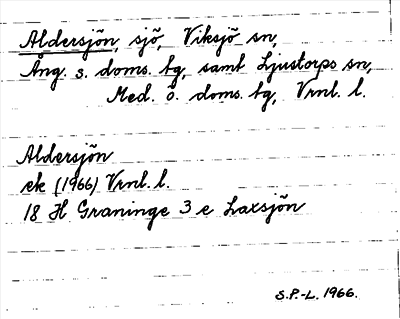 Aldersjön, sjö, Viksjö sn,
Ång. s. doms. tg, samt Ljustorps sn,
Med. ö. doms. tg, Vrnl. l.
Aldersjön
ek (1966) Vrnl. l.
18 H Graninge 3 e Laxsjön
S.P.-L. 1966.